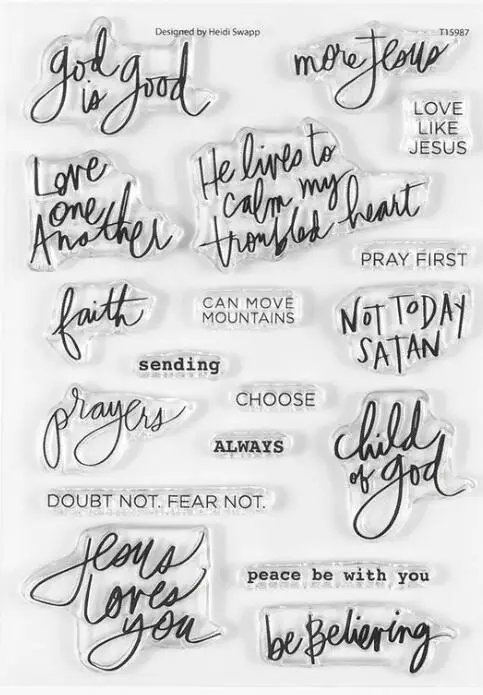 Designed by Heidi Swapp
T15987
god
is good
more Jesus
LOVE
LIKE
JESUS
Love
one
Another
He lives to
calm my
troubled heart
PRAY FIRST
faith
CAN MOVE
MOUNTAINS
NOT TODAY
SATAN
sending
prayers
CHOOSE
ALWAYS
child
of god
DOUBT NOT. FEAR NOT.
Jesus
loves
you
peace be with you
be Believing